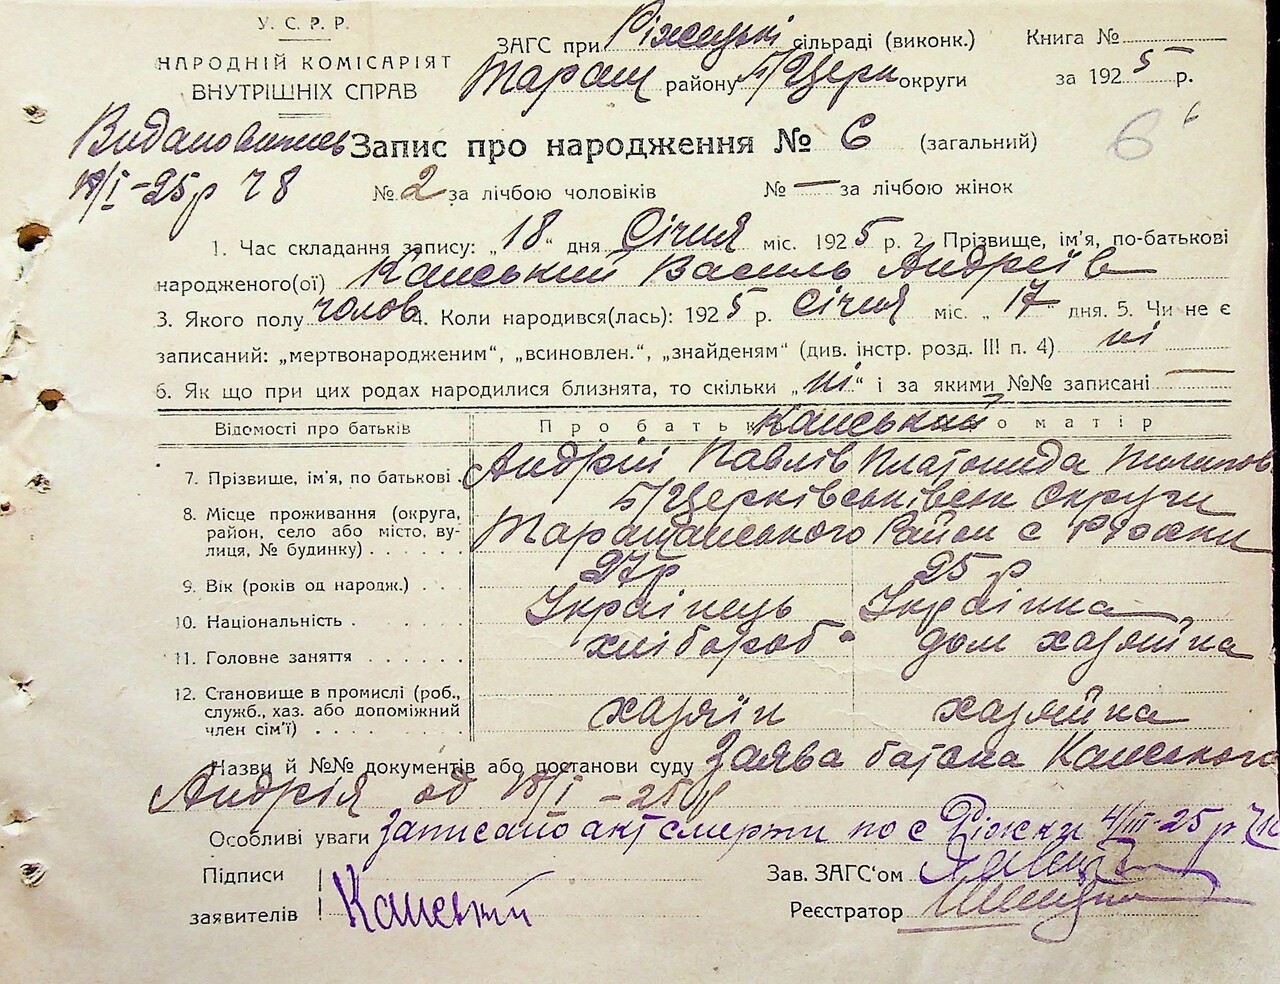 У. С. Р. Р.
НАРОДНІЙ КОМІСАРІЯТ
ВНУТРІШНІХ СПРАВ
ЗАГС при Ріжецькі сільраді (виконк.) Книга №
Таращ району Б/Церк округи за 1925 р.
18/I-25р
Запис про народження № 6 (загальний) 6 6
№ 2 за лічбою чоловіків № — за лічбою жінок
1. Час складання запису: „18“ дня Січня міс. 1925 р. 2. Прізвище, ім'я, по-батькові
народженого(ої) Канський Василь Андріїв
3. Якого полу чолов 4. Коли народився(лась): 1925 р. Січня міс. „17“ дня. 5. Чи не є
записаний: „мертвонародженим“, „всиновлен.“, „знайденям“ (див. інстр. розд. III п. 4) ні
6. Як що при цих родах народилися близнята, то скільки „ні“ і за якими №№ записані —
Канський
Відомості про батьків Про батька Про матір
7. Прізвище, ім'я, по батькові Андрій Павлів Платонида
8. Місце проживання (округа, район, село або місто, вулиця, № будинку) Б/Церківськівськ Округи
Таращанського Район с Ріжки
9. Вік (років од народж.) 27р 25 р
10. Національність Українець Українка
11. Головне заняття хлібороб дом хазяйка
12. Становище в промислі (роб., служб., хаз. або допоміжний член сім'ї) хазяін хазяйка
Назви й №№ документів або постанови суду Заява батька Канського
Андрія од 18/I-25р
Особливі уваги Записано акт смерти по с Ріжки 4/III-25р
Підписи
заявителів Канський
Зав. ЗАГС'ом
Реєстратор